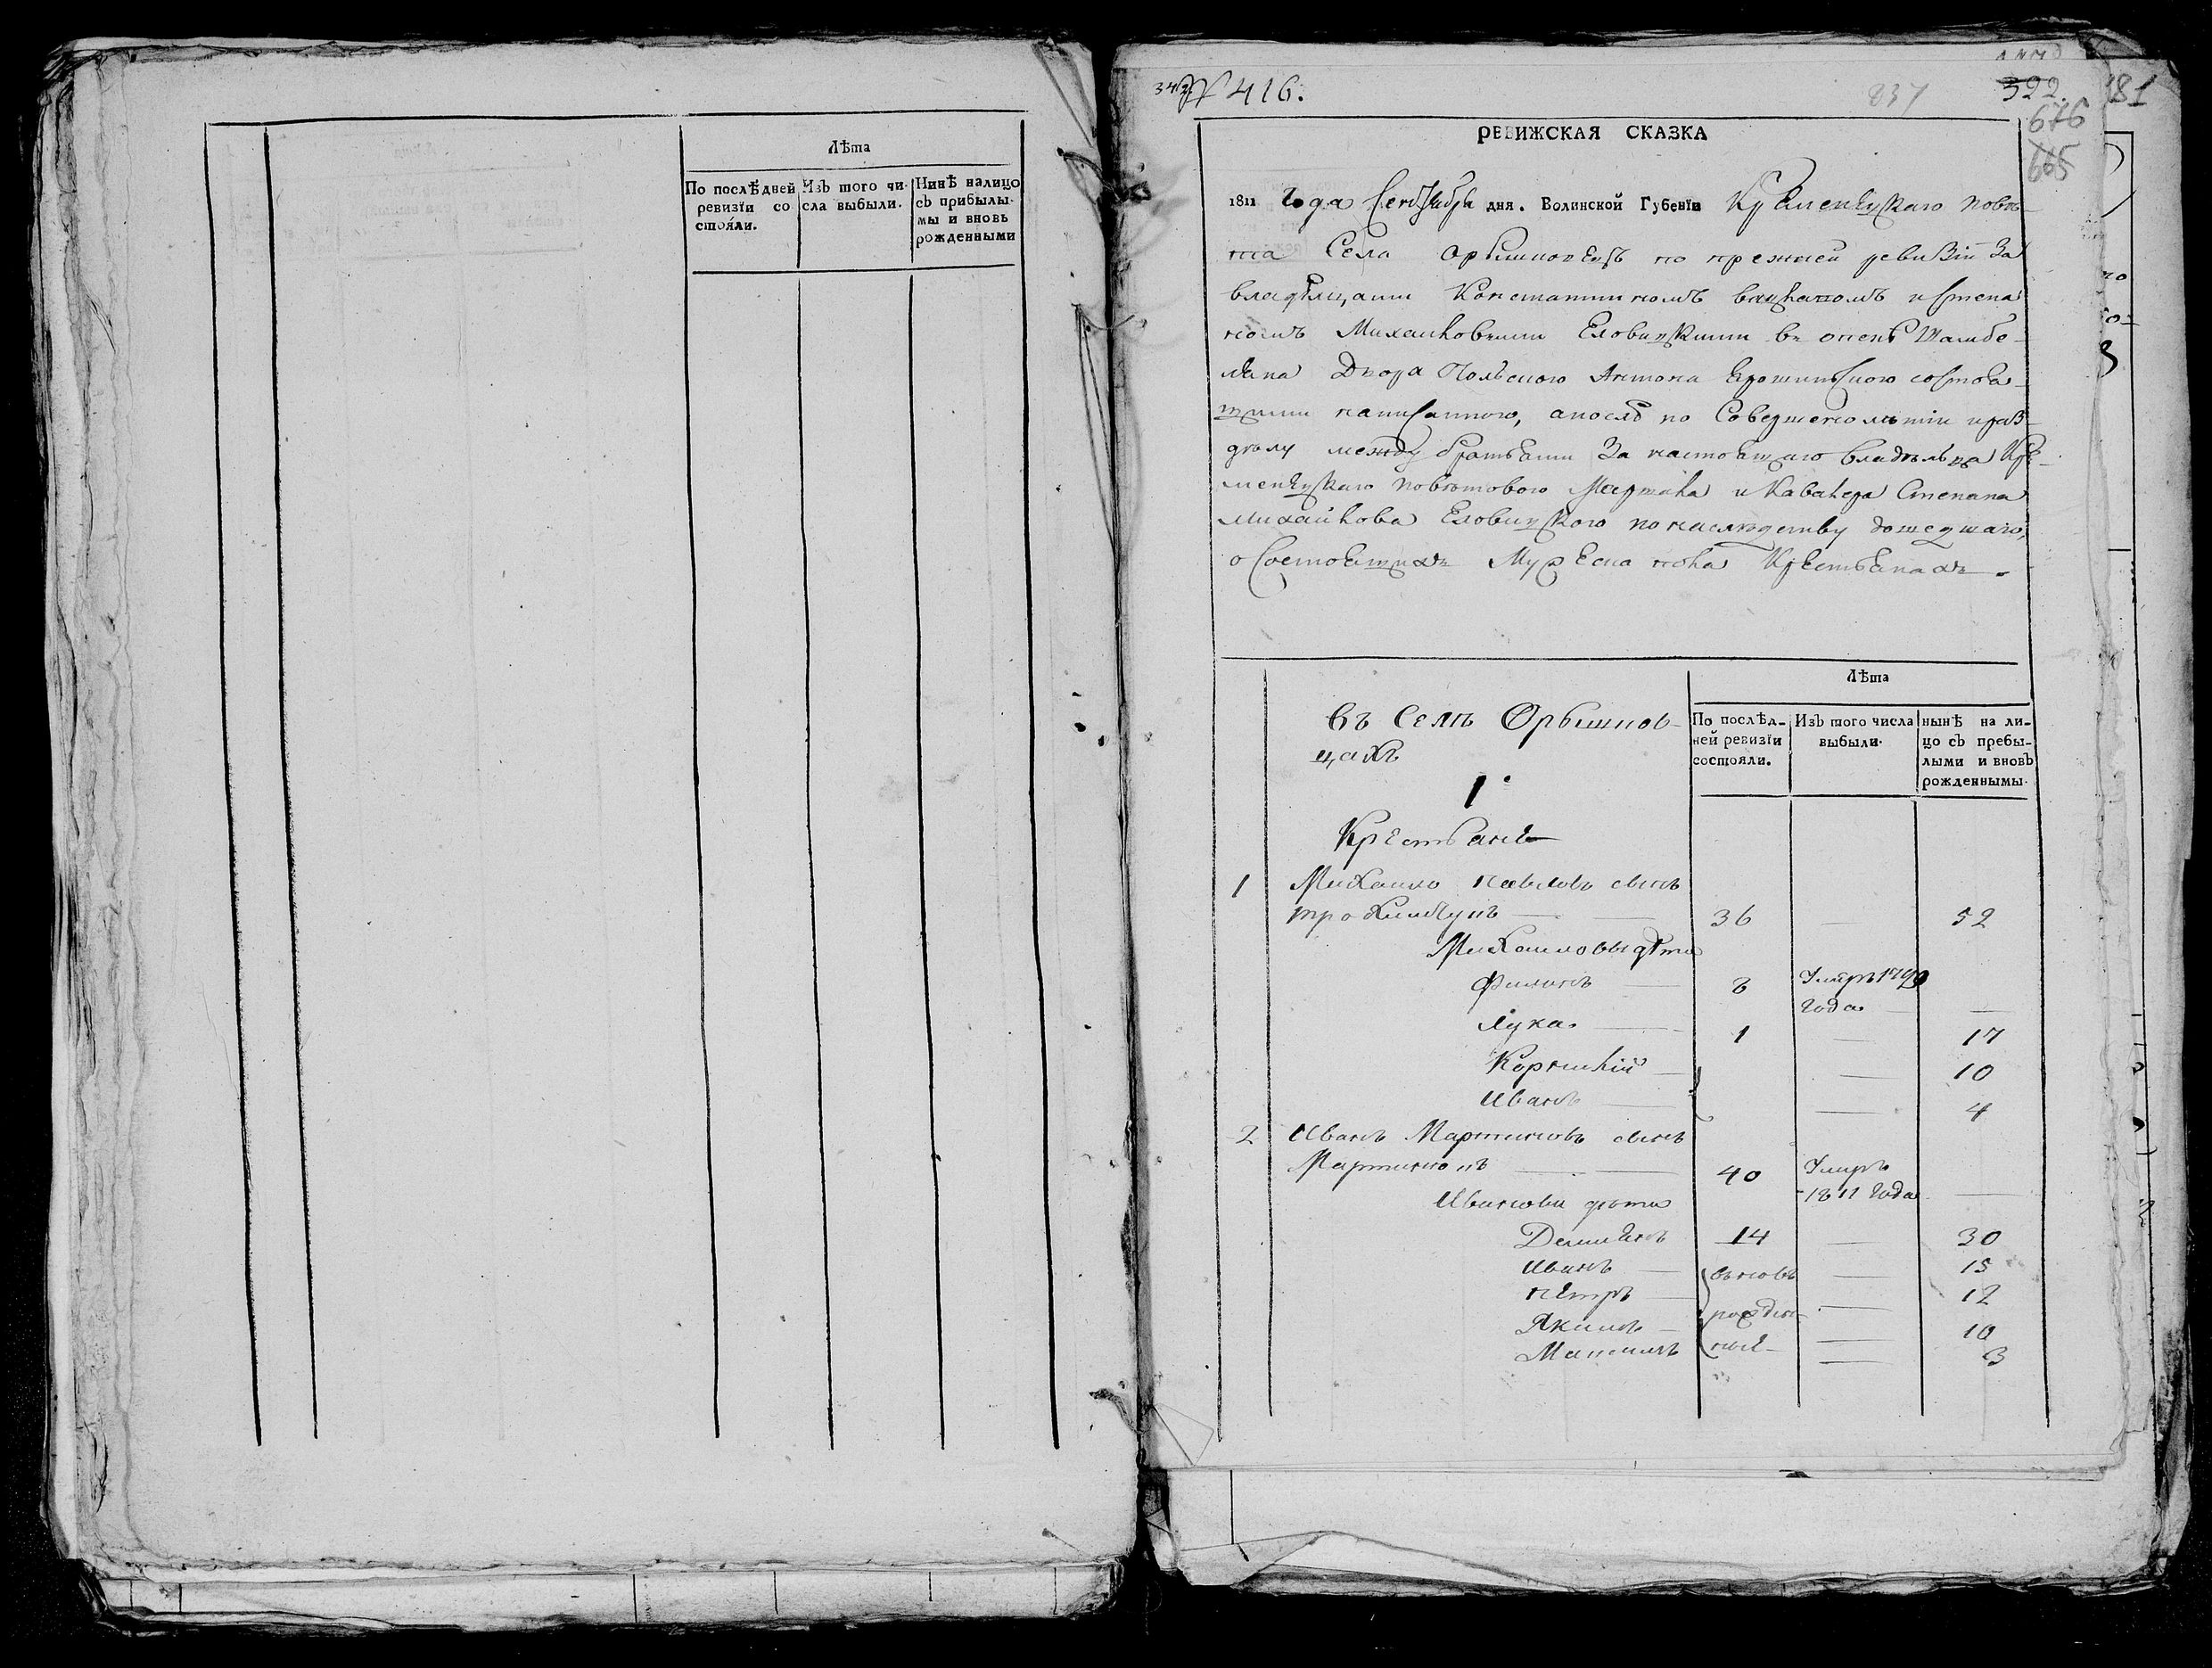 Лѣта
По послѣдней ревизїи со стояли.
Изъ того чи- сла выбыли.
Нинѣ налицо съ прибылы- мы и вновь рожденными
№ 416.
837
322.
181
676
665
РЕВИЖСКАЯ СКАЗКА
1811 Года Сентября дня. Волинской Губенїи Кременецкаго повѣ-
та Села Орышковецъ по прежней ревизіи За
владѣлцами Константиномъ и Степа
номъ Михайловыми Еловицкими въ опекѣ Шамбе-
лана Двора Польского Антона состоя-
щими написанного, а послѣ по Совершенолѣтіи и раз-
дѣлу между братьями За настоящаго владѣльца Кре-
менецкаго повѣтового Маршала и Кавалера Степана
Михайлова Еловицкого по наслѣдству дошедшаго,
о Состоящихъ Мужеска пола Крестьянахъ.
Лѣта
По послѣд- ней ревизїи состояли.
Изъ того числа выбыли.
нынѣ на ли- цо съ пребы- лыми и вновь рожденнымы.
Въ Селѣ Орышков-
цахъ
1
Крестьяне
1 Михайло Павловъ сынъ
36 — 52
Михайловы дѣти
8 Умеръ 179
Года —
Лука 1 — 17
Корнилій — 10
Иванъ — 4
2 Иванъ Мартиновъ сынъ
Мартинюкъ 40 Умеръ
1811 Года —
Ивановы дѣти
Демянъ 14 — 30
Иванъ вновь — 15
Петръ рожден- — 12
Якимъ ные — 10
Максимъ — 3